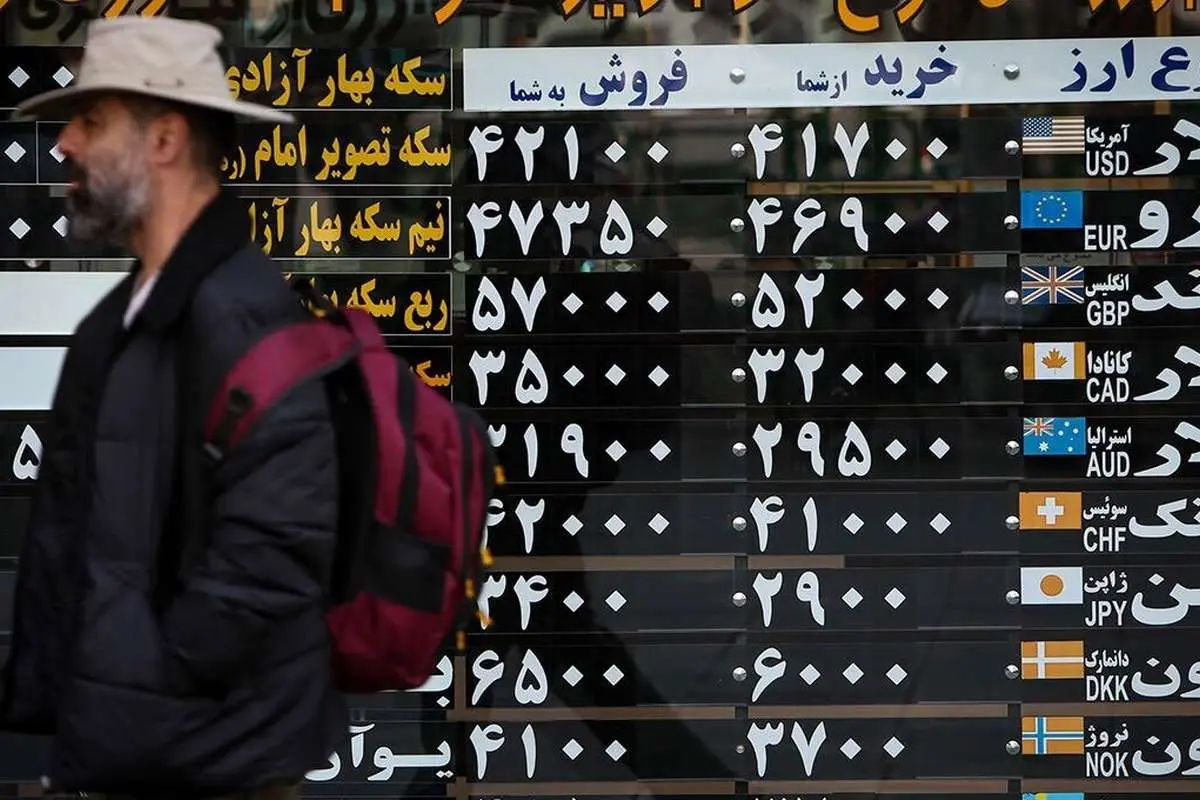 ارز خرید ازشما فروش به شما
آمریکا USD ۴۱۷۰۰ ۴۲۱۰۰
EUR ۴۶۹۰۰ ۴۷۳۵۰
انگلیس GBP ۵۲۰۰۰ ۵۷۰۰۰
کانادا CAD ۳۲۰۰۰ ۳۵۰۰۰
استرالیا AUD ۲۹۵۰۰ ۳۱۹۰۰
سوئیس CHF ۴۱۰۰۰ ۴۲۰۰۰
ژاپن JPY ۲۹۰۰ ۳۴۰۰
دانمارک DKK ۶۰۰۰ ۶۵۰۰
نروژ NOK ۳۷۰۰ ۴۱۰۰
سکه بهار آزادی
سکه تصویر امام (ره
نیم سکه بهار آزا
ربع سکه
سکه
۵
یوآن